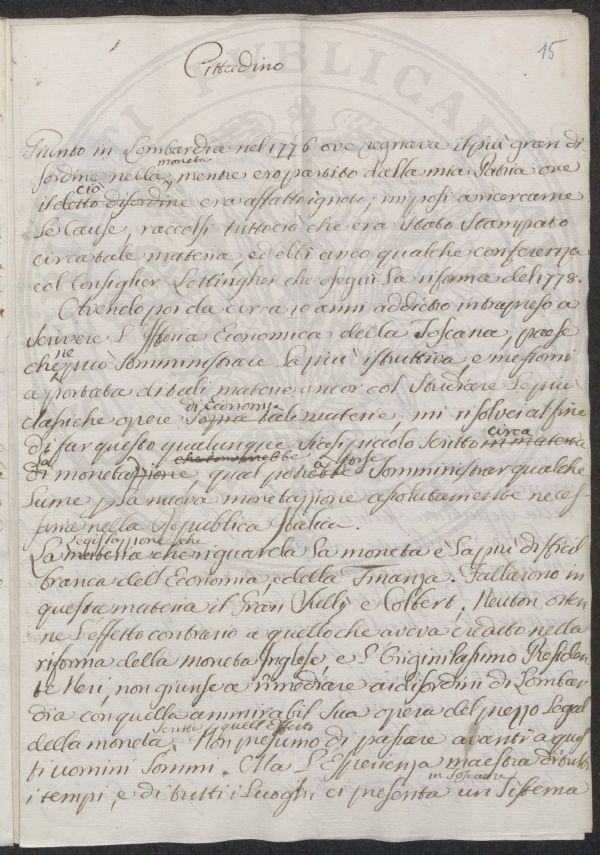 15
Cittadino
Giunto in Lombardia nel 1776 ove regnava il più gran di
sordine nella moneta, mentre ero partito dalla mia Patria ove
ciò
il detto disordine era affatto ignoto; mi posi a ricercarne
le cause, raccolsi tutto ciò che era stato stampato
circa tale materia, ed ebbi anco qualche conferenza
col Consiglier che eseguì la riforma del 1778.
Avendo poi da circa 10 anni addietro intrapreso a
scrivere l'Istoria Economica della Toscana, paese
che ne può somministrare la più istruttiva, e
a portata di tali materie ancor col studiare le più
classiche opere di Economia
sopra tali materie; mi risolvei al fine
di far questo qualunque siasi piccolo scritto circa
in materia
di moneta, qual potrebbe forse somministrar qualche
lume la nuova monetazione assolutamente neces
saria nella Repubblica Italica.
La Legislazione che
materia che riguarda la moneta è la più difficil
branca dell'Economia, e della Finanza. Fallarono in
questa materia il Gran Sully e Colbert; Neuton otten
ne l'effetto contrario a quello che aveva creduto nella
riforma della moneta Inglese, e l' Presiden
te Neri, non giunse a rimediare ai disordini di Lombar
dia con quella ammirabil sua opera del prezzo legal
della moneta scritta quell'effetto. Non presumo di passare avanti a ques
ti uomini sommi. Ma l'Esperienza maestra di tutti
i tempi, e di tutti i luoghi ci presenta in Toscana un sistema